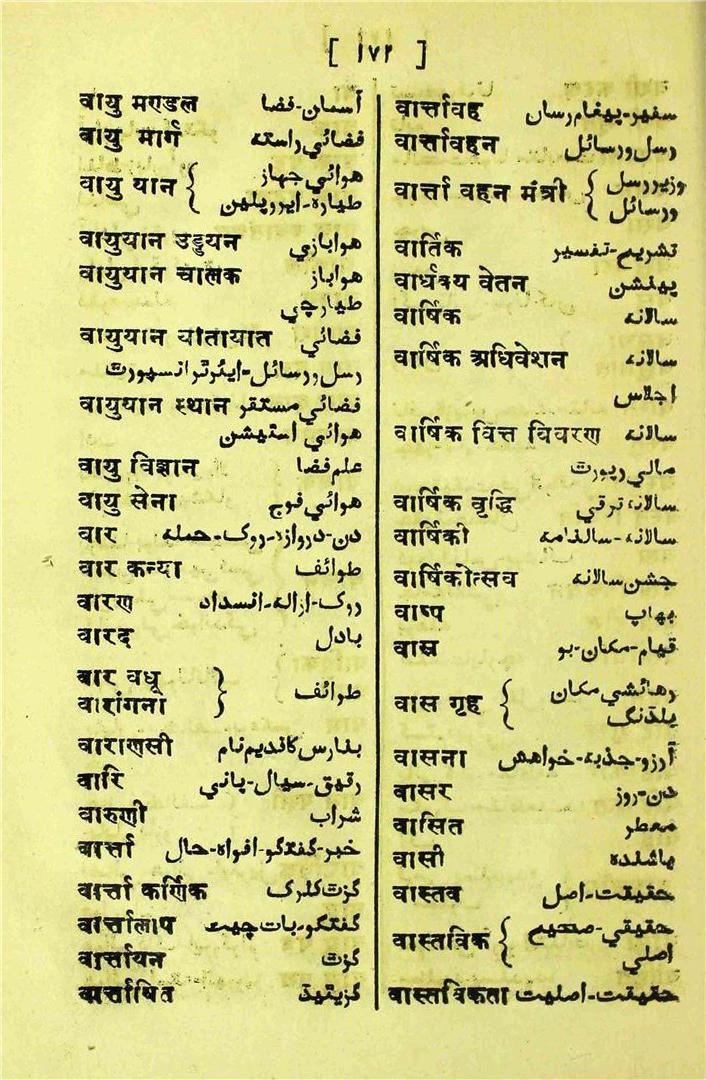 [ ۱۷۲ ]
वायु मण्डल آسمان-فضا
वायु मार्ग فضائي راسته
वायु यान { هوائي جهاز
طياره-ايروپلين
वायुयान उड्डयन هوابازي
वायुयान चालक هواباز
طيارچي
वायुयान यातायात فضائي
رسل و رسائل-ايئر ٹرانسپورٹ
वायुयान स्थान فضائي مستقر
هوائي اسٹيشن
वायु विज्ञान علم فضا
वायु सेना هوائي فوج
वार دن-دروازه-روک-حمله
वार कन्या طوائف
वारण روک-ازاله-انسداد
वारद بادل
वार वधू
वारांगना } طوائف
वाराणसी بنارس کا قديم نام
वारि رقيق-سيال-پاني
वारुणी شراب
वार्त्ता خبر-گفتگو-افواه-حال
वार्त्ता कर्णिक گزٹ کلرک
वार्त्तालाप گفتگو-بات چيت
वार्त्तायन گزٹ
वार्त्तायित گزيٹيڈ
वार्त्तावह سفير-پيغام رساں
वार्त्तावहन رسل و رسائل
वार्त्ता वहन मंत्री { وزير رسل
و رسائل
वार्तिक تشريح-تفسير
वार्धक्य वेतन پينشن
वार्षिक سالانه
वार्षिक अधिवेशन سالانه
اجلاس
वार्षिक वित्त विवरण سالانه
مالي رپورٹ
वार्षिक वृद्धि سالانه ترقي
वार्षिकी سالانه-سالنامه
वार्षिकोत्सव جشن سالانه
वाष्प بهاپ
वास قيام-مکان-بو
वास गृह { رهائشي مکان
بلڈنگ
वासना آرزو-جذبه-خواهش
वासर دن-روز
वासित معطر
वासी باشنده
वास्तव حقيقت-اصل
वास्तविक { حقيقي-صحيح
اصلي
वास्तविकता حقيقت-اصليت